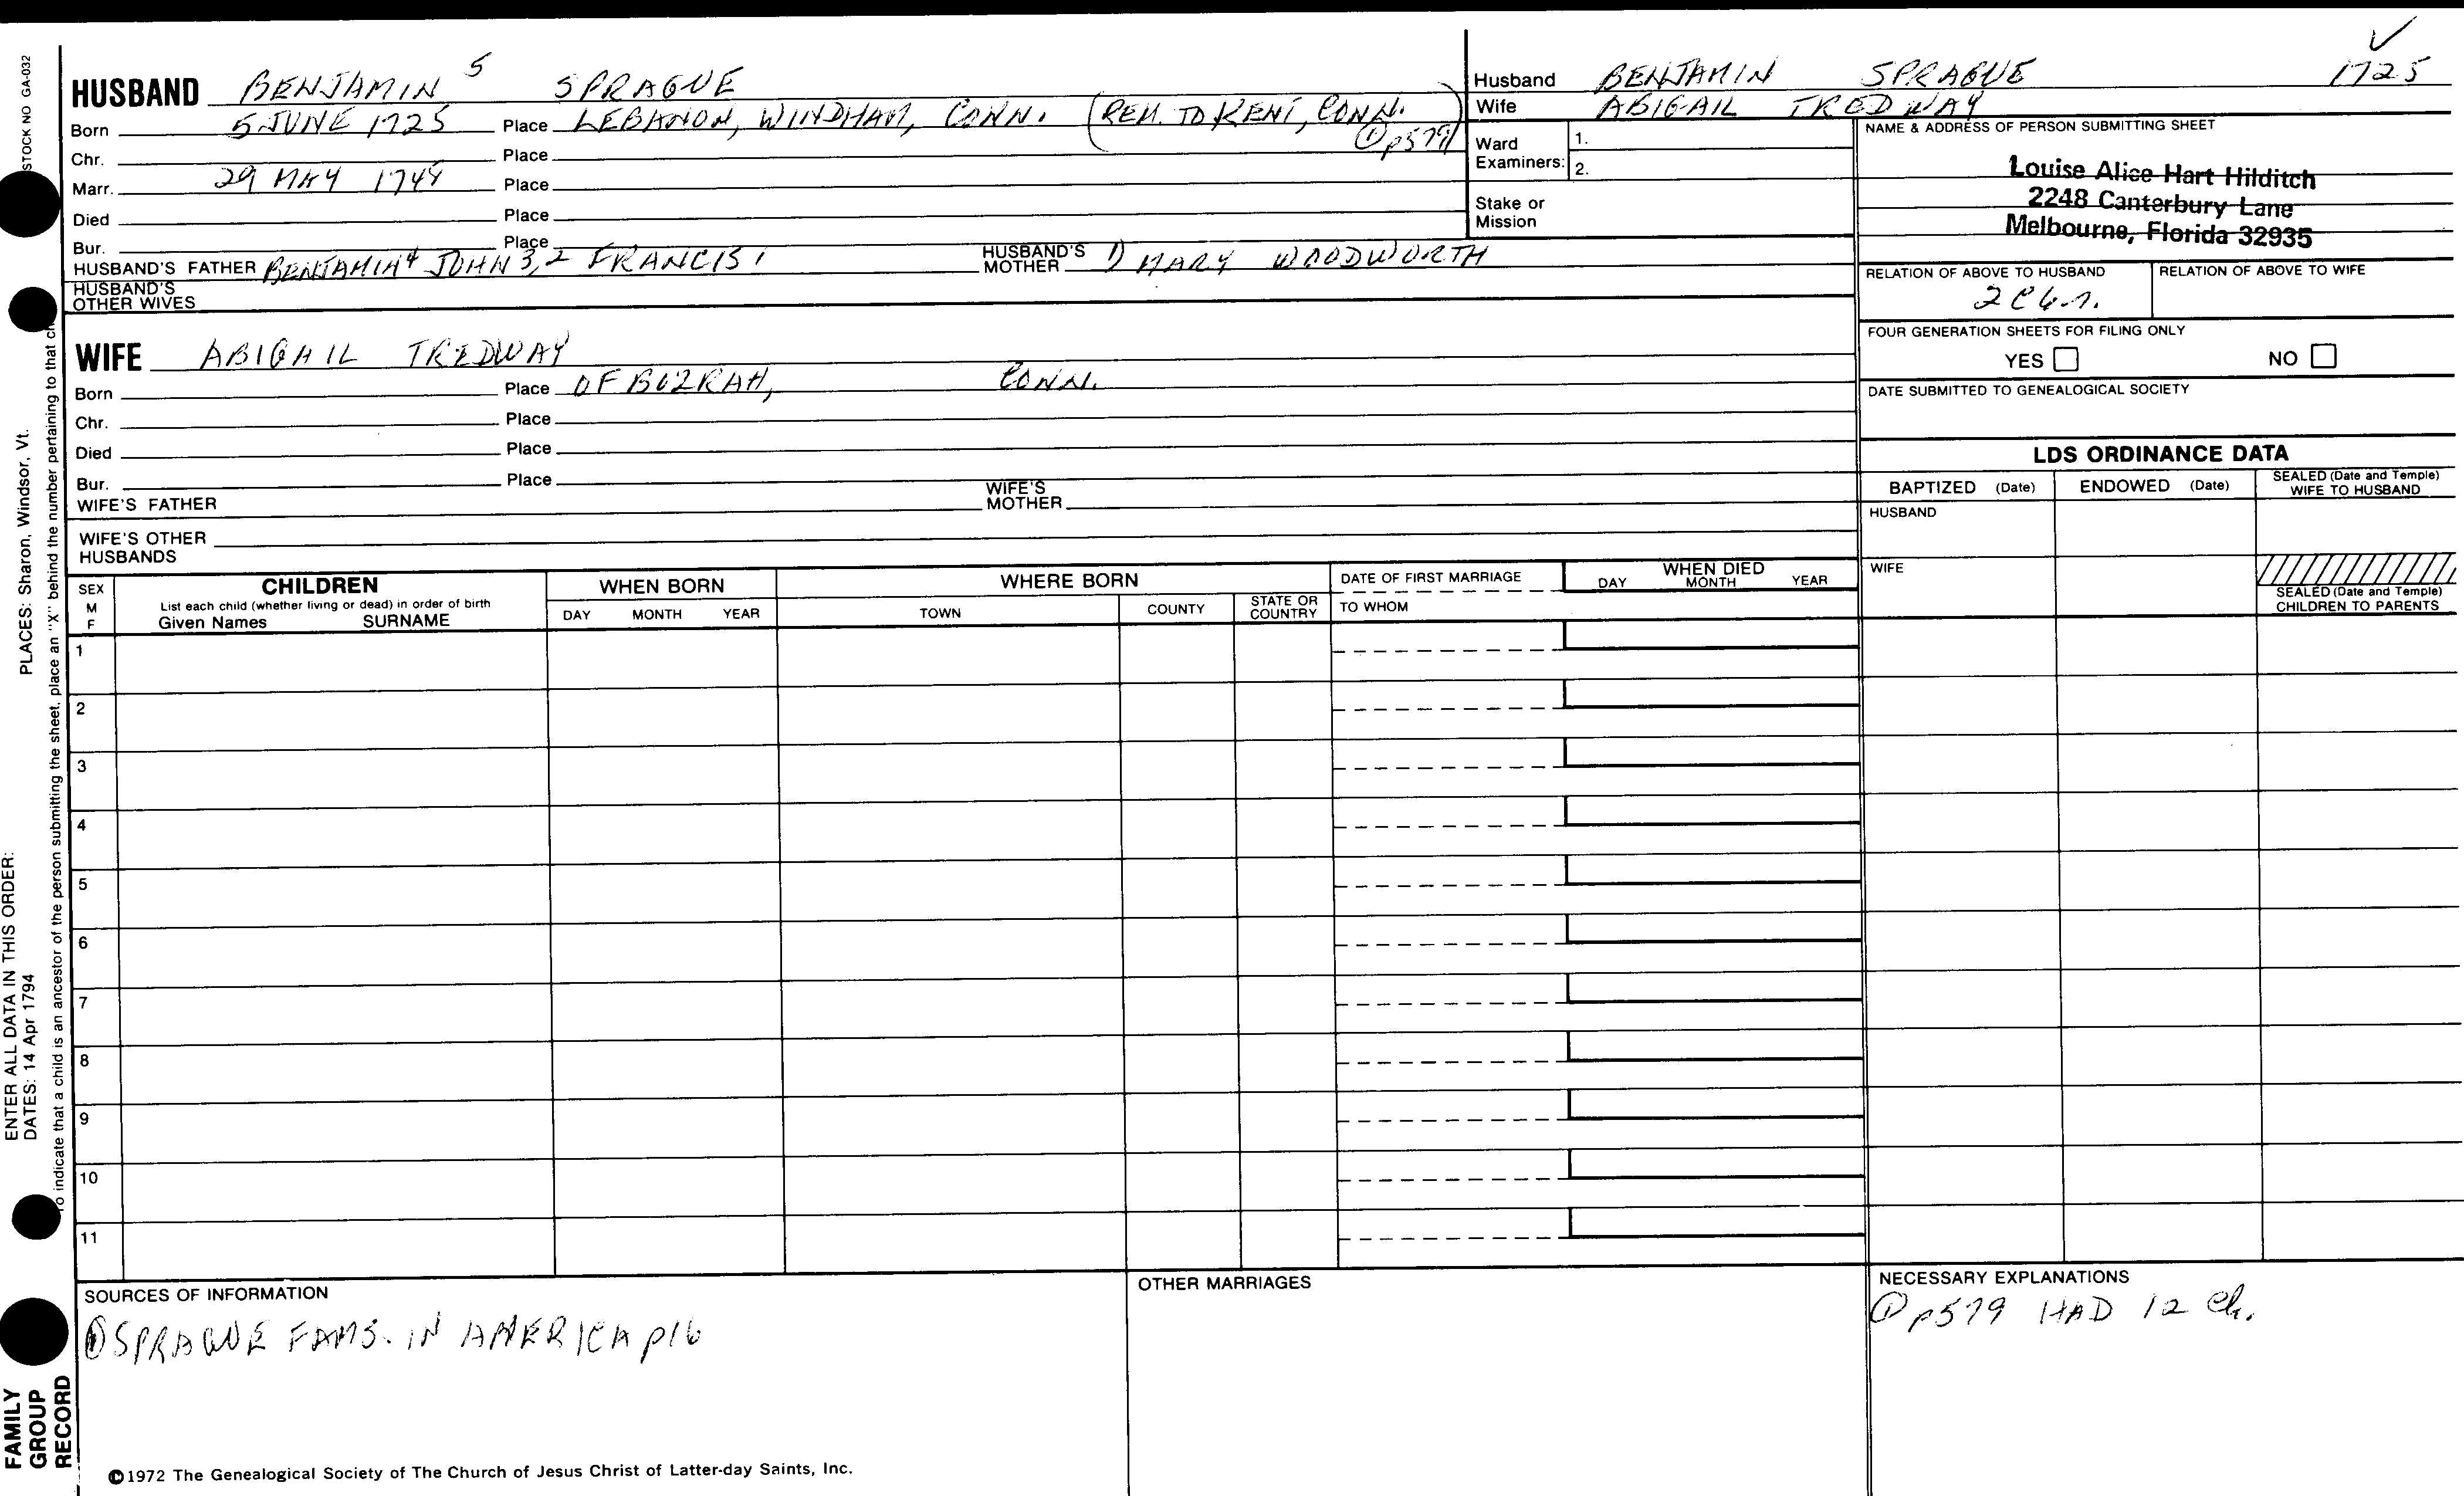 STOCK NO GA-032
PLACES: Sharon, Windsor, Vt.
ENTER ALL DATA IN THIS ORDER:
DATES: 14 Apr 1794
To indicate that a child is an ancestor of the person submitting the sheet, place an "X" behind the number pertaining to that ch
FAMILY
GROUP
RECORD
HUSBAND BENJAMIN 5 SPRAGUE
Born 5 JUNE 1725 Place LEBANON, WINDHAM, CONN. (REM. TO KENT, CONN. ① p579)
Chr. Place
Marr. 29 MAY 1744 Place
Died Place
Bur. Place
HUSBAND'S FATHER BENJAMIN 4 JOHN 3,2 FRANCIS 1 HUSBAND'S MOTHER 1) MARY WOODWORTH
HUSBAND'S
OTHER WIVES
WIFE ABIGAIL TREDWAY
Born Place OF BOZRAH, CONN.
Chr. Place
Died Place
Bur. Place
WIFE'S FATHER WIFE'S MOTHER
WIFE'S OTHER
HUSBANDS
Husband BENJAMIN SPRAGUE 1725 ✓
Wife ABIGAIL TREDWAY
Ward
Examiners: 1.
2.
Stake or
Mission
NAME & ADDRESS OF PERSON SUBMITTING SHEET
Louise Alice Hart Hilditch
2248 Canterbury Lane
Melbourne, Florida 32935
RELATION OF ABOVE TO HUSBAND RELATION OF ABOVE TO WIFE
2C6r.
FOUR GENERATION SHEETS FOR FILING ONLY
YES NO
DATE SUBMITTED TO GENEALOGICAL SOCIETY
LDS ORDINANCE DATA
BAPTIZED (Date) ENDOWED (Date) SEALED (Date and Temple) WIFE TO HUSBAND
HUSBAND
WIFE
SEALED (Date and Temple)
CHILDREN TO PARENTS
SEX
M
F
CHILDREN
List each child (whether living or dead) in order of birth
Given Names SURNAME
WHEN BORN
DAY MONTH YEAR
WHERE BORN
TOWN COUNTY STATE OR COUNTRY
DATE OF FIRST MARRIAGE
TO WHOM
WHEN DIED
DAY MONTH YEAR
1
2
3
4
5
6
7
8
9
10
11
SOURCES OF INFORMATION
① SPRAGUE FAMS. IN AMERICA p16
OTHER MARRIAGES
NECESSARY EXPLANATIONS
① p579 HAD 12 ch.
©1972 The Genealogical Society of The Church of Jesus Christ of Latter-day Saints, Inc.